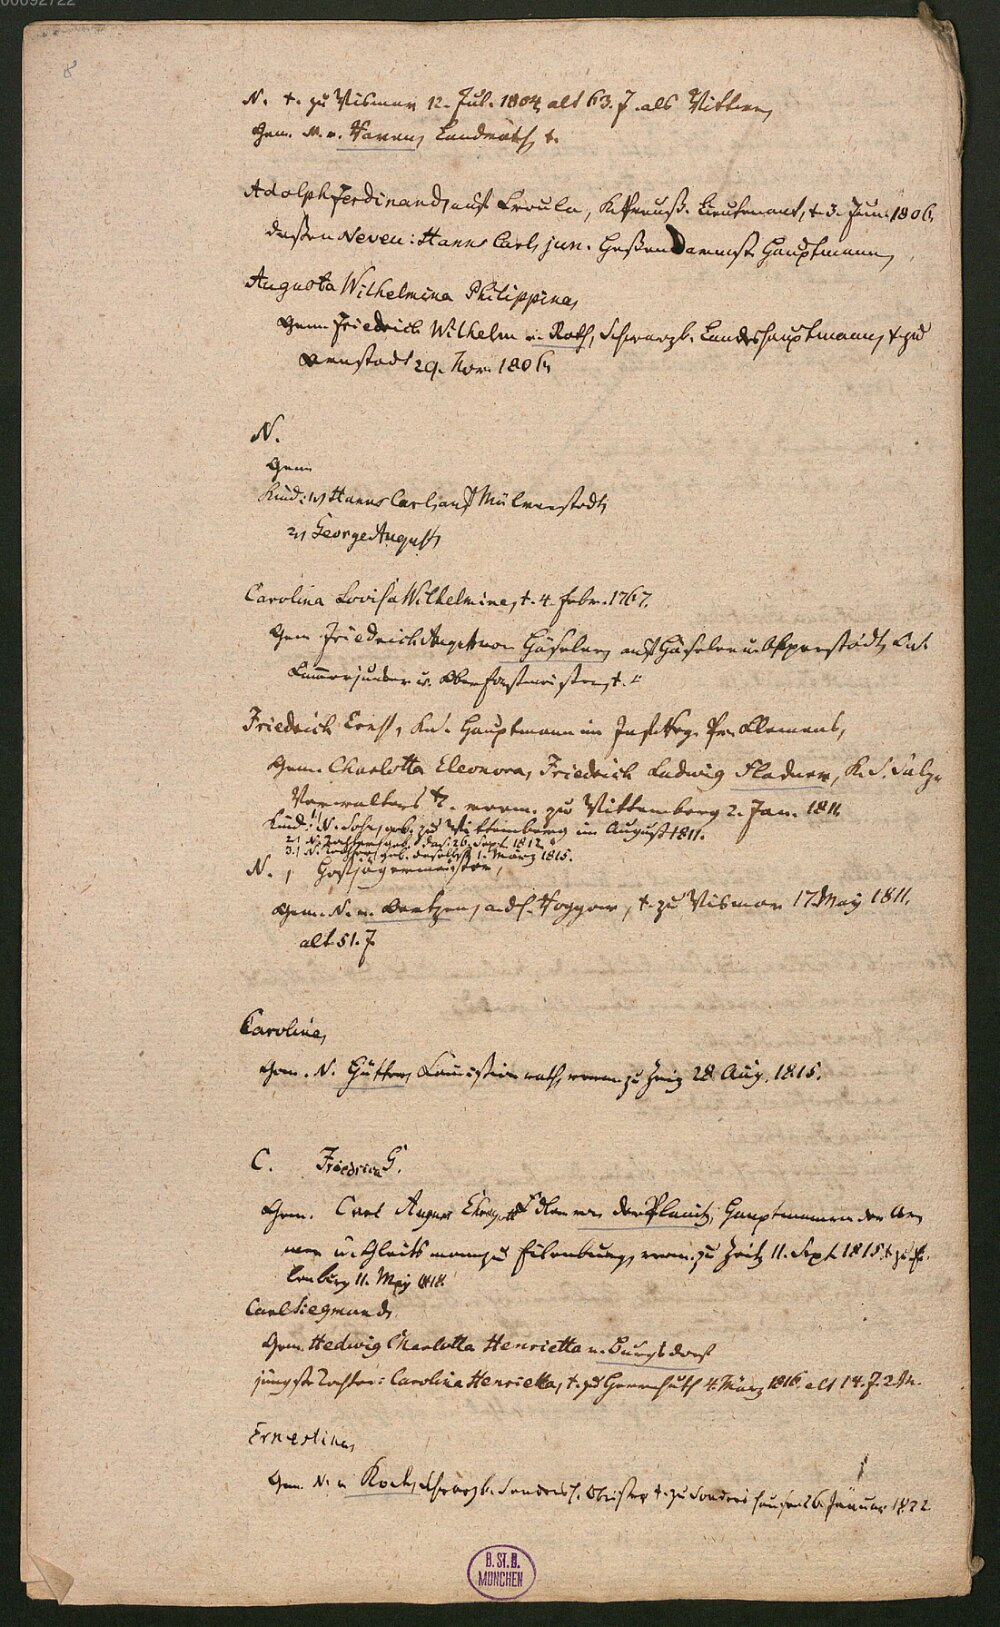 00092722
8
N. †. zu Wismar 12. Jul. 1804, alt 63. J. als Wittwe,
Gem. N. v. Landrath, †.
Adolph Ferdinand, auf K. Preuß. Lieutenant, †. 3. Jun. 1806.
deßen Neveu: Hanns Carl, jun. Heßen Darmst. Hauptmann,
Augusta Wilhelmina Philippina,
Gem. Friedrich Wilhelm v. Roth, Schwarzb. Landeshauptmann, †. zu
Arnstadt 29. Nov. 1806,
N.
Gem.
Kind: 1.) Hanns Carl, auf Mülverstedt,
2.) George August,
Carolina Lovisa Wilhelmine, †. 4. Febr. 1767.
Gem. Friedrich August von Häseler, auf Häseler u.
Cammerjunker u. Oberforstmeister, †.
Friedrich Ernst, Hauptmann im Inft. Reg. Pr. Clemens,
Gem. Charlotta Eleonora, Friedrich Ludwig Fladner, K. S. Salz-
Verwalters T. verm. zu Wittemberg 2. Jan. 1811.
Kind: 1.) N. Sohn, geb. zu Wittemberg im August 1811.
2.) N. Tochter, geb. das. 26. Sept. 1812.
3.) N. Tochter, geb. daselbst 1. März 1815.
N., Hofjägermeister,
Gem. N. v. Oertzen, a. d. H. Roggow, †. zu Wismar 17. May 1811.
alt 51. J.
Carolina,
Gem. N. Commissionsrath, verm. zu Zeiz 28. Aug. 1815.
C. Friedrica G.
Gem. Carl August Ehregott Edler von der Planitz, Hauptmann in der Ar-
mee u. Gleitsmann zu Eilenburg, verm. zu Zeitz 11. Sept. 1815. †. zu Ei-
lenburg 11. May 1818.
Carl Siegmund,
Gem. Hedwig Charlotta Henrietta v. Burgsdorf
jüngste Tochter: Carolina Henrietta, †. zu Herrnhuth 4. März 1816. alt 14. J. 2. M.
Ernestina,
Gem. N. v. Koch, Schwarzb. Sondersh. Obrister, †. zu Sondershausen 26. Januar 1822.
B. St. B.
MÜNCHEN